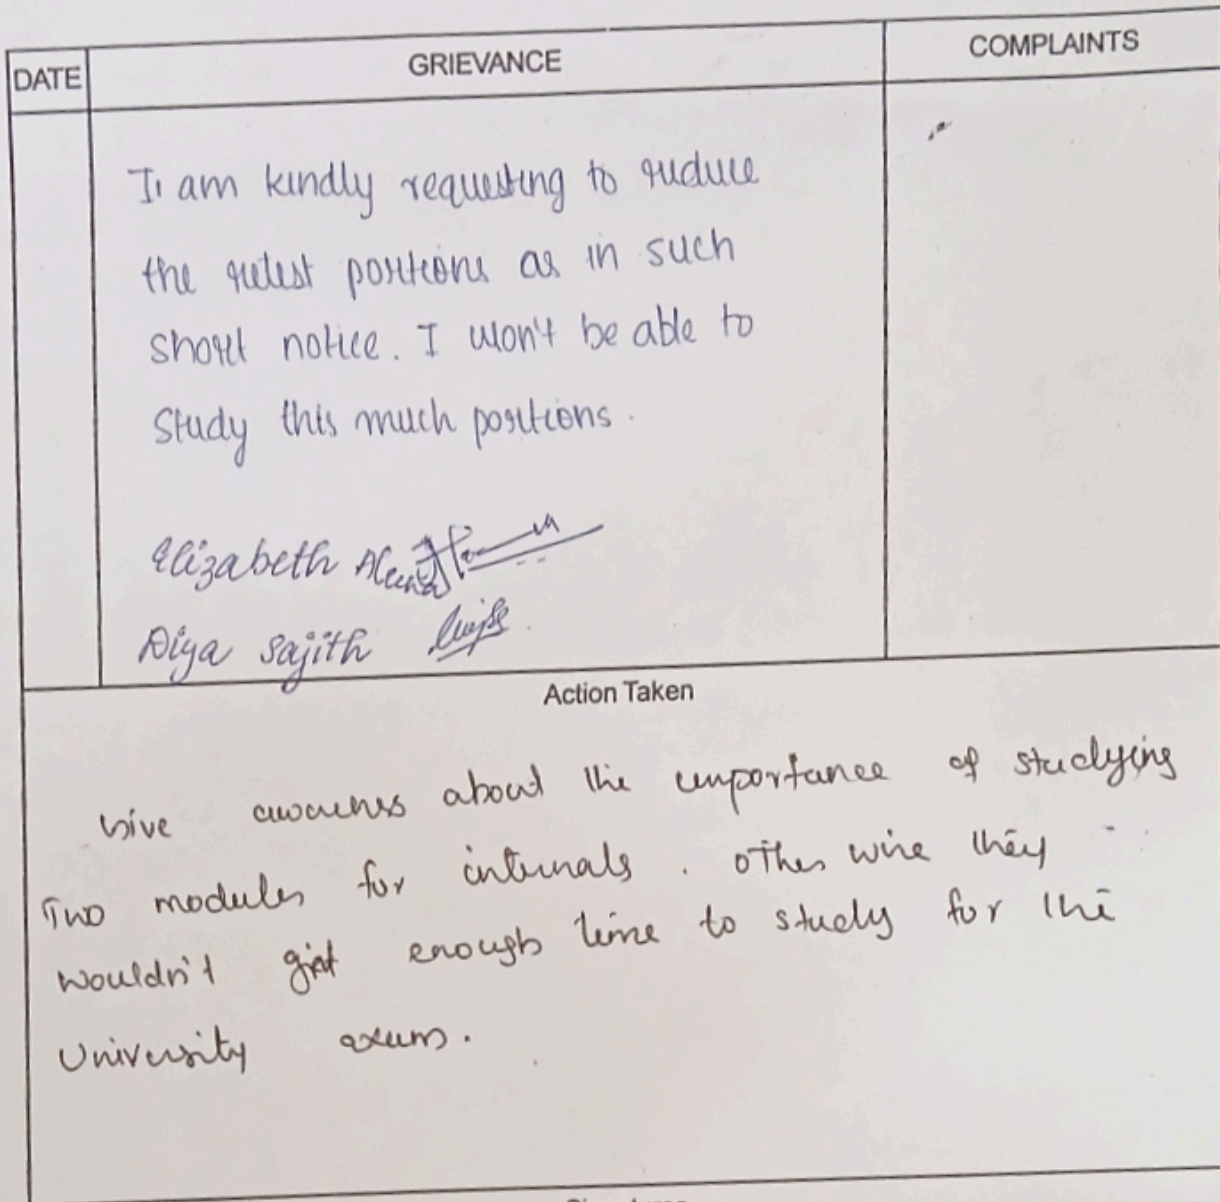 DATE
GRIEVANCE
COMPLAINTS
I am kindly requesting to reduce
the retest portions as in such
short notice. I won't be able to
Study this much portions.
Elizabeth Aleena
Diya Sajith
Action Taken
Give awareness about the importance of studying
Two modules for internals. Other wise they
wouldn't get enough time to study for the
University exams.